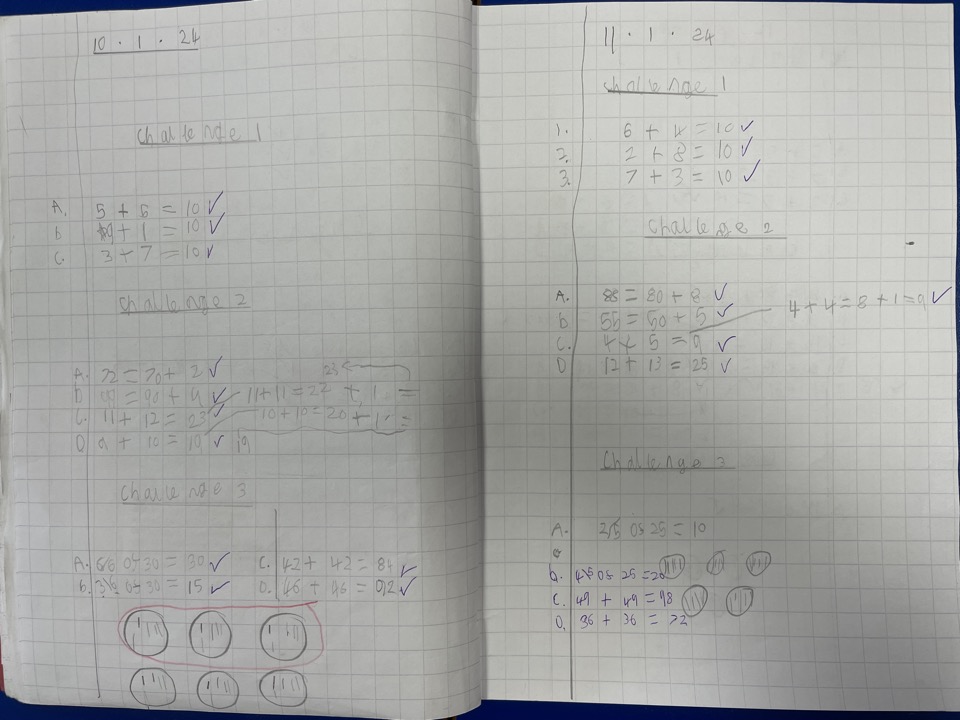 10 . 1 . 24
Challenge 1
A. 5 + 5 = 10 ✓
b + 1 = 10 ✓
C. 3 + 7 = 10 ✓
Challenge 2
A. 72 = 70 + 2 ✓
= 90 + 9 ✓ 11 + 11 = 22 + 1 =
C. 11 + 12 = 23 ✓ 10 + 10 = 20 +
23
D 9 + 10 = 19 ✓ 19
Challenge 3
A. of 30 = 30 ✓ C. 42 + 42 = 84 ✓
B. of 30 = 15 ✓ D. 46 + 46 = 92 ✓
11 . 1 . 24
Challenge 1
1. 6 + 4 = 10 ✓
2. 2 + 8 = 10 ✓
3. 7 + 3 = 10 ✓
Challenge 2
A. 88 = 80 + 8 ✓
b 55 = 50 + 5 ✓ 4 + 4 = 8 + 1 = 9 ✓
C. 4 + 5 = 9 ✓
D 12 + 13 = 25 ✓
Challenge 3
A. 2/5 of 25 = 10
b. 4/5 of 25 = 20
C. 49 + 49 = 98
D. 36 + 36 = 72